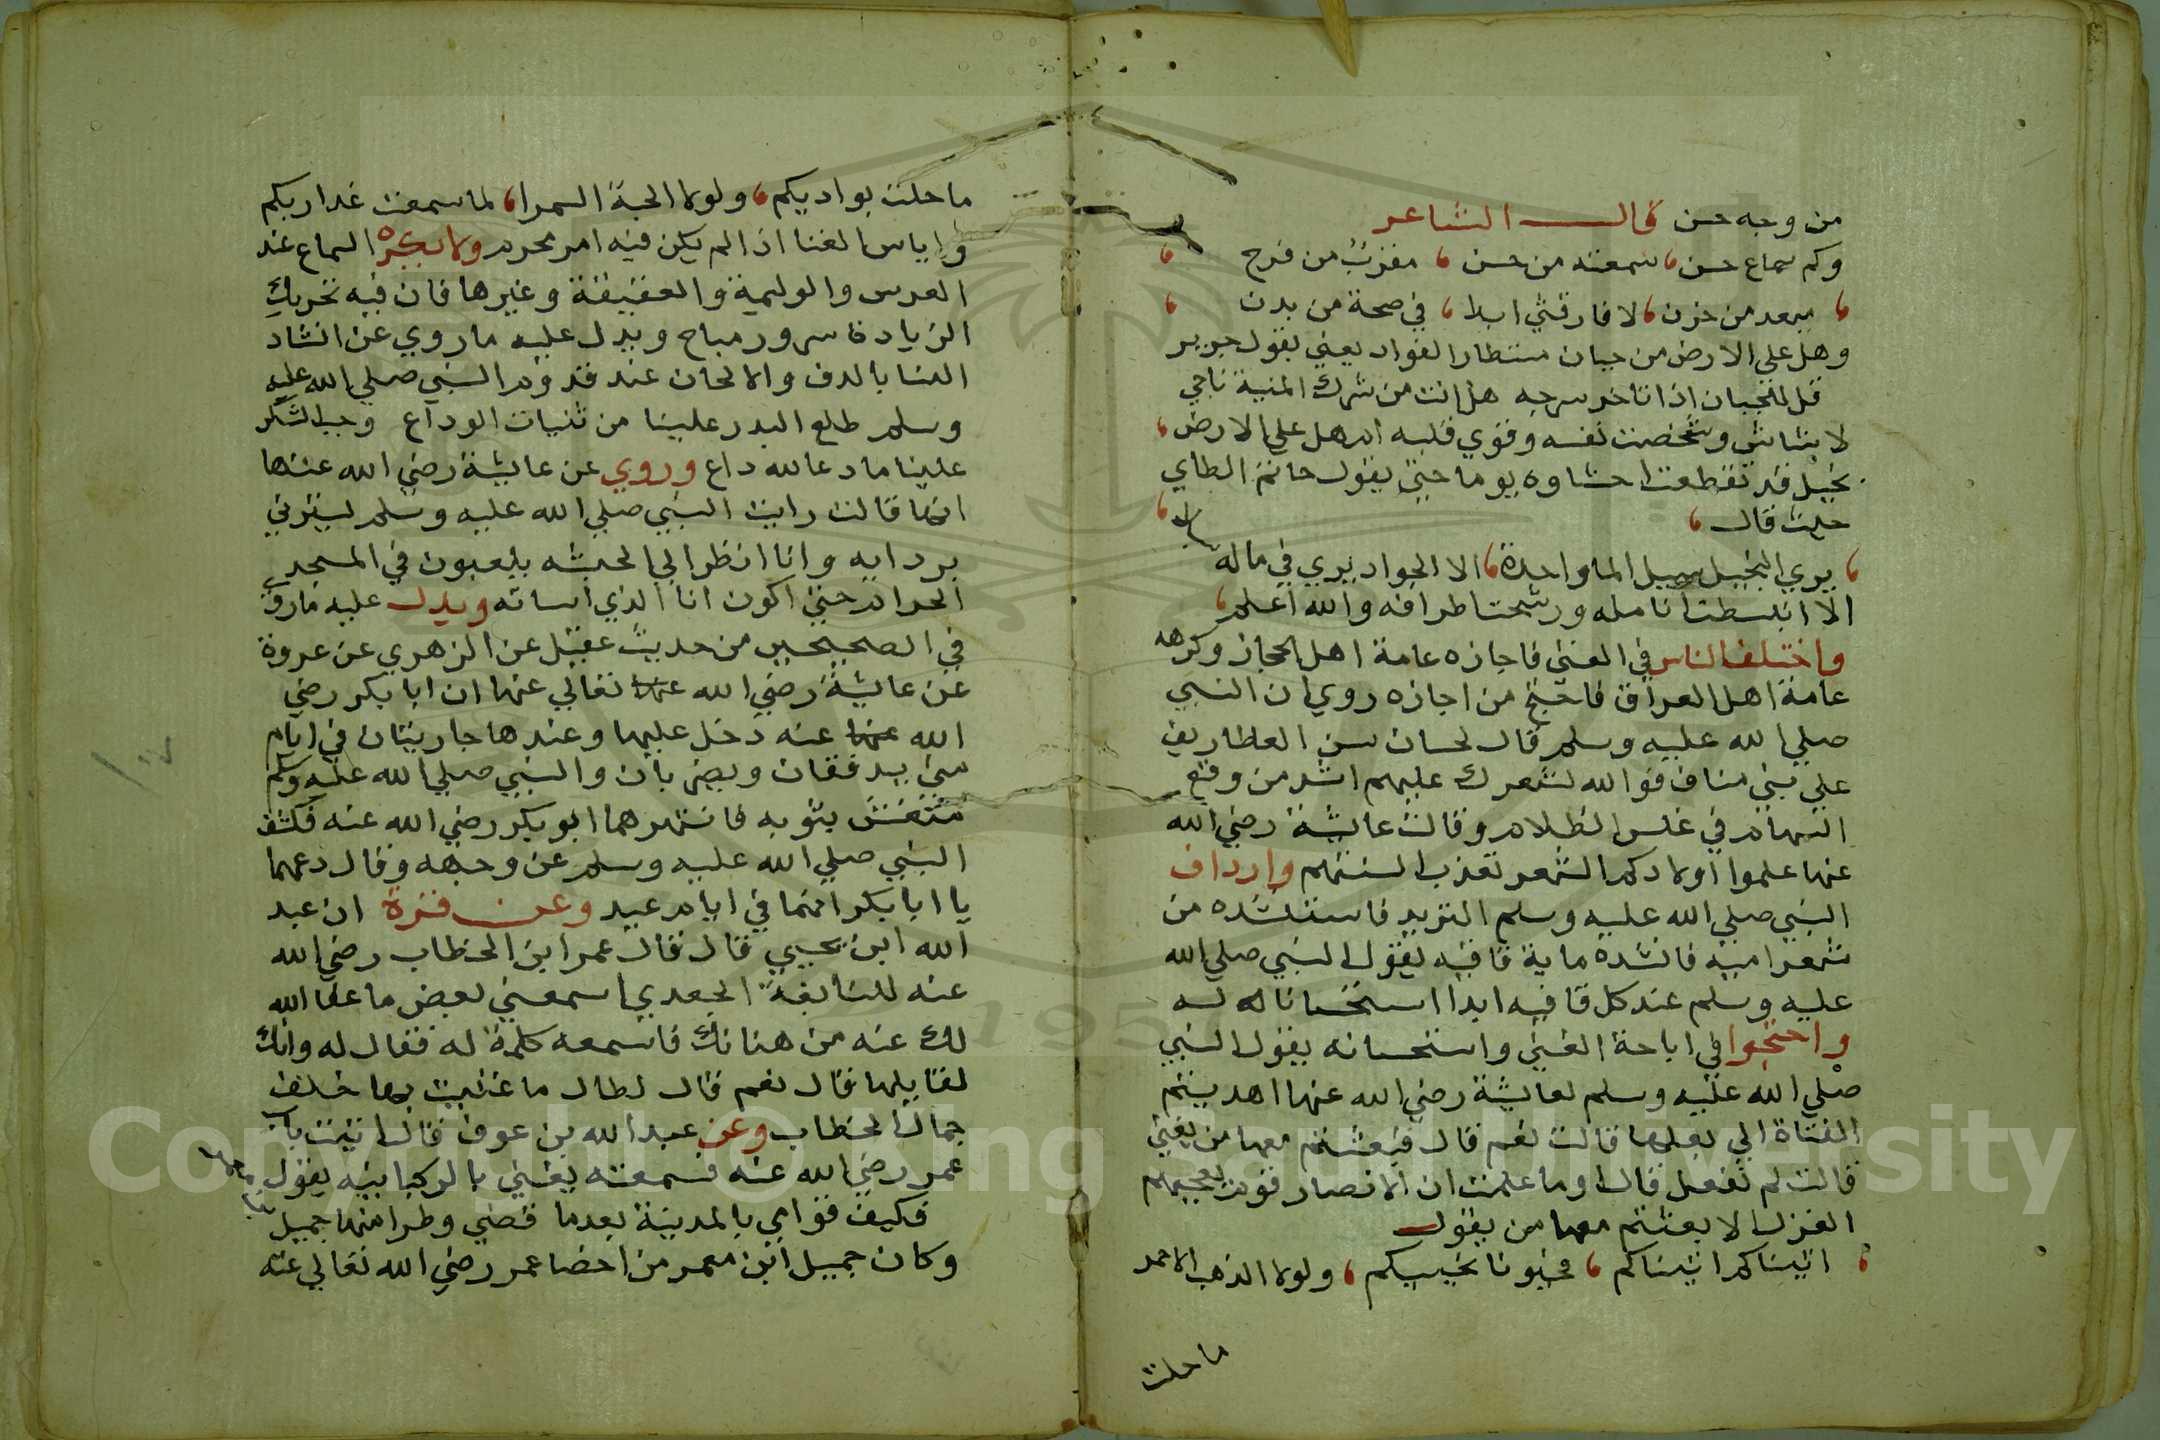 من وجه حسن قال الشاعر
وكم سماع حسن، سمعته من حسن، مقرب من فرح
، مبعد من حزن، لا فارقني ابدا، في صحة من بدن
وهل على الارض من جبان مستطار الفواد يعني بقول جرير
قل للجبان اذا تاخر سرجه هل انت من شرك المنية ناجي
لا بتاش وشخصت نفسه وقوي قلبه ام هل على الارض
بخيل قد تقطعت احشاوه يوما حتى يقول حاتم الطاي
حين قال
يري البخيل سبيل الما واحدة، الا الجواد يري في ماله
الا انبسطت انامله ورشحت اطرافه والله اعلم
واختلف الناس في الغنى فاجازه عامة اهل الحجاز وكرهه
عامة اهل العراق فاحتج من اجازه روي ان النبي
صلي الله عليه وسلم قال لحسان سن الغطاريف
علي بني مناف فوالله لشعرك عليهم اشد من وقع
السهام في غلس الظلام وقالت عايشة رضي الله
عنها علموا اولادكم الشعر تعذب السنتهم وارداف
النبي صلي الله عليه وسلم الشريد فاستنشده من
شعر اميه فانشده ماية قافيه يقول النبي صلي الله
عليه وسلم عند كل قافيه ابدا استحسانا له
واحتجوا في اباحة الغنى واستحسانه بقول النبي
صلي الله عليه وسلم لعايشة رضي الله عنها اهديتم
الفتاة الي بعلها قالت نعم قال فبعثتم معها من يغني
قالت لم نفعل قال اوما علمت ان الانصار قوم يعجبهم
الغزل الا بعثتم معها من يقول
، اتيناكم اتيناكم، فحيونا نحييكم، ولولا الذهب الاحمر
ما حلت
ما حلت بواديكم، ولولا الحبة السمرا، لما سمعت عذاريكم
ولا باس الغنا اذا لم يكن فيه امر محرم ولا يكره السماع عند
العرس والوليمة والعقيقة وغيرها فان فيه تحريك
الزيادة سرور مباح ويدل عليه ما روي عن انشاد
النسا بالدف والالحان عند قدوم النبي صلي الله عليه
وسلم طلع البدر علينا من ثنيات الوداع وجب الشكر
علينا ما دعا لله داع وروي عن عايشة رضي الله عنها
انها قالت رايت النبي صلي الله عليه وسلم يسترني
بردايه وانا انظر الي الحبشه يلعبون في المسجد
الحرام حتى اكون انا الذي اسامه ويدل عليه ماروي
في الصحيحين من حديث عقيل عن الزهري عن عروة
عن عايشة رضي الله تعالي عنها ان ابا بكر رضي
الله عنه دخل عليها وعندها جاريتان في ايام
منى يدففان ويضربان والنبي صلي الله عليه وسلم
متغش بثوبه فانتهرهما ابو بكر رضي الله عنه فكشف
النبي صلي الله عليه وسلم عن وجهه وقال دعهما
يا ابا بكر انهما في ايام عيد وعن قرة ان عبد
الله ابن يحيي قال قال عمر ابن الخطاب رضي الله
عنه للنابغة الجعدي اسمعني بعض ما عفا الله
لك عنه من هناتك فاسمعه كلمة له فقال له وانك
لقايلها قال نعم قال لطال ما غنيت بها خلف
جمال الخطاب وعن عبد الله بن عوف قال اتيت باب
عمر رضي الله عنه فسمعته يغني بالركبانيه يقول
فكيف قوامي بالمدينة بعدما قضي وطرا منها جميل
وكان جميل ابن معمر من اخصا عمر رضي الله تعالي عنه
Copyright © King Saud University
195